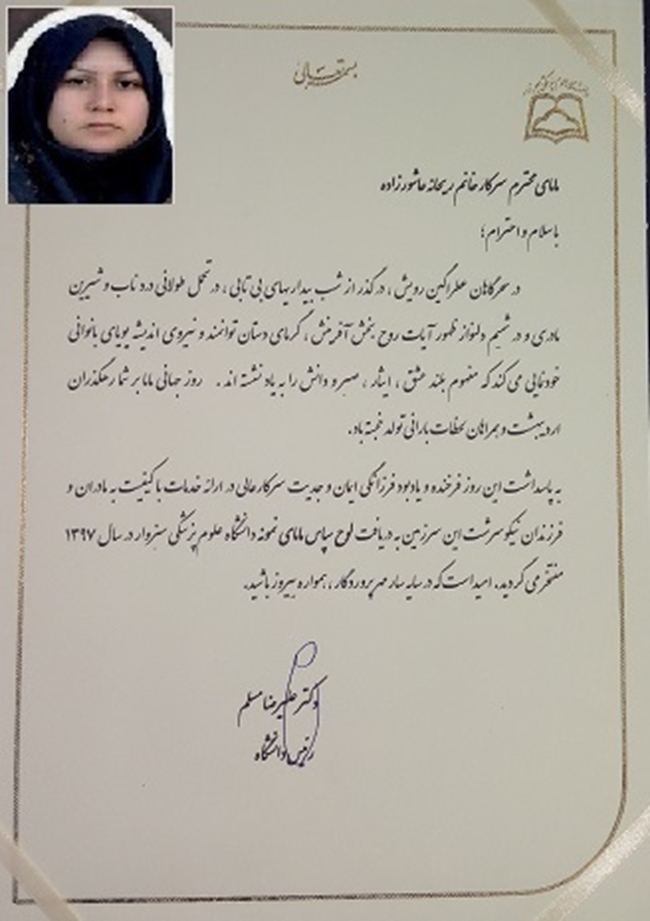 بسمه تعالی
مامای محترم سرکار خانم ریحانه عاشورزاده
با سلام و احترام؛
در سحرگاهان عطرآگین رویش، در گذر از شب بیداریهای بی تابی، در تحمل طولانی درد ناب و شیرین
مادری و در شمیم دلنواز ظهور آیات روح بخش آفرینش، گرمای دستان توانمند و نیروی اندیشه پویای بانوانی
خودنمایی می کند که مفهوم بلند عشق، ایثار، صبر و دانش را به یاد نشسته اند. روز جهانی ماما بر شما رهگذران
اردیبهشت و همراهان لحظات بارانی تولد خجسته باد.
به پاسداشت این روز فرخنده و یادبود فرزانگی ایمان و جدیت سرکارعالی در ارائه خدمات با کیفیت به مادران و
فرزندان نیکوسرشت این سرزمین به دریافت لوح سپاس مامای نمونه دانشگاه علوم پزشکی سبزوار در سال ۱۳۹۷
مفتخر می گردید. امید است که در سایه سار مهر پروردگار، همواره پیروز باشید.
دکتر علیرضا مسلم
رئیس دانشگاه